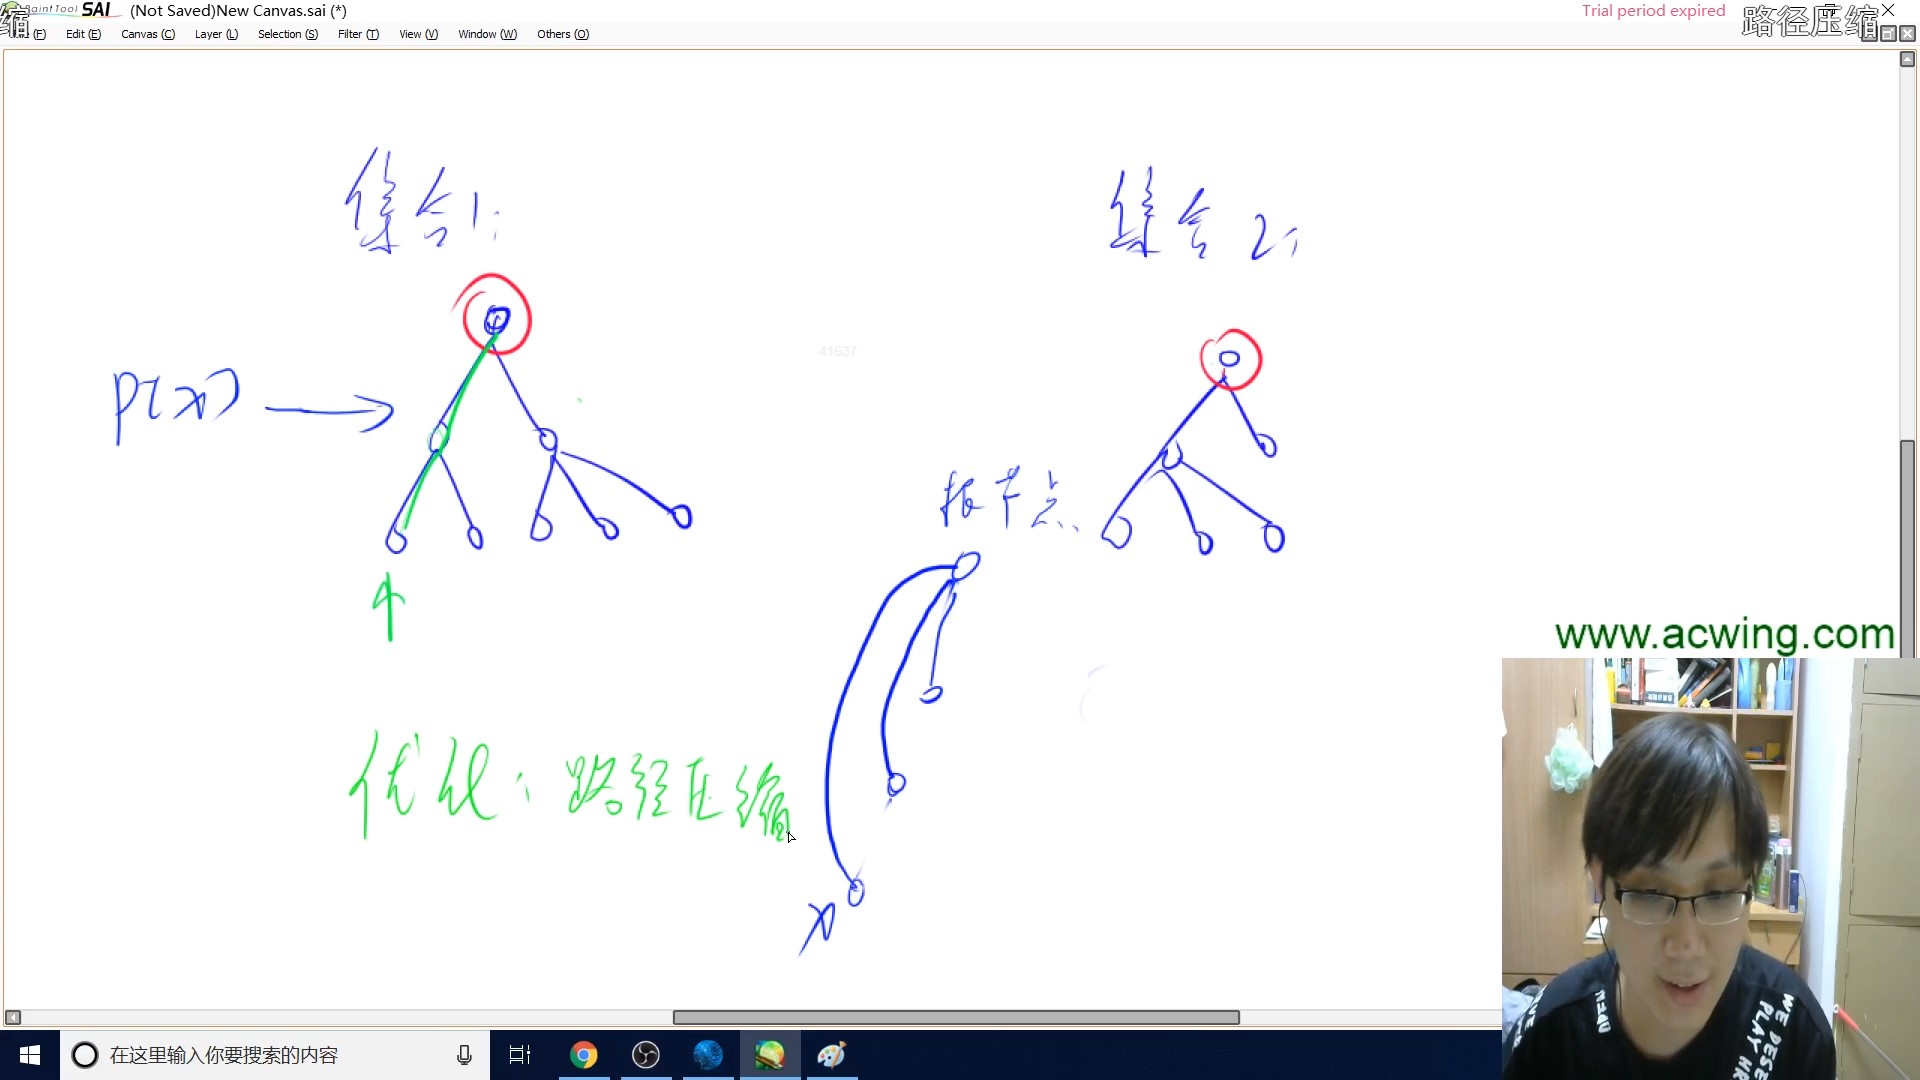 PaintTool SAI (Not Saved)New Canvas.sai (*)
Trial period expired
路径压缩
缩
(F) Edit (E) Canvas (C) Layer (L) Selection (S) Filter (T) View (V) Window (W) Others (O)
集合1:
集合2:
41637
P[x]
根节点
www.acwing.com
优化: 路径压缩
x
NEU
WE DESE
PLAY HA
在这里输入你要搜索的内容